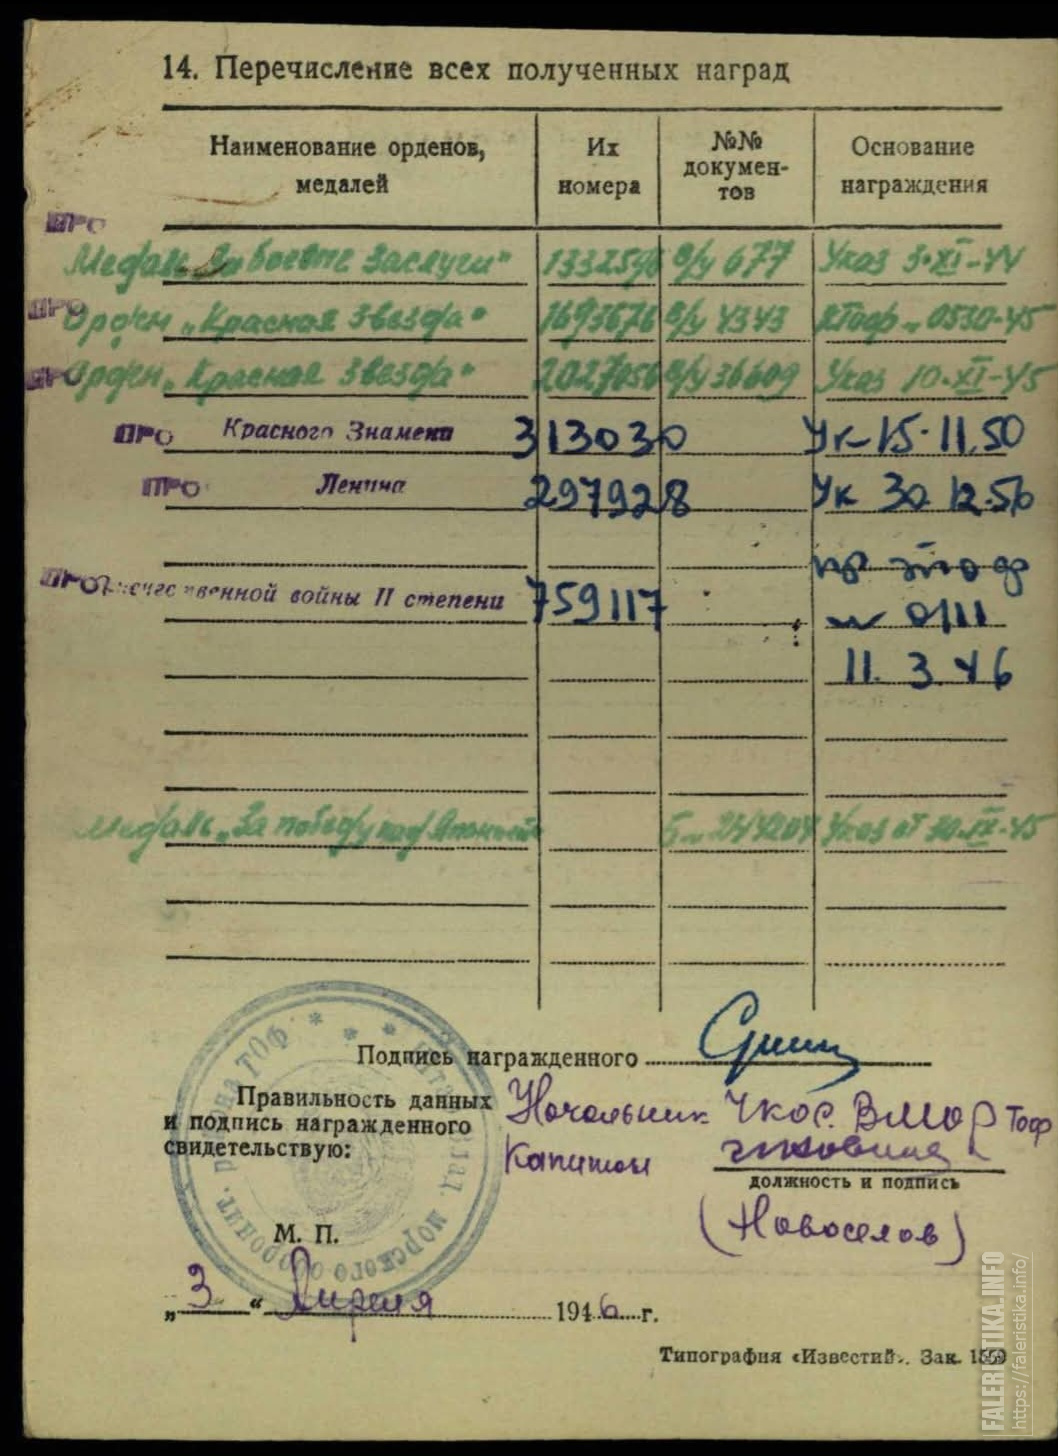 14. Перечисление всех полученных наград
Наименование орденов, медалей
Их номера
№№ докумен-тов
Основание награждения
ПРО
Медаль „За боевые заслуги" 1332596 в/ч 677 Указ 3-XI-44
ПРО Орден „Красная Звезда" 1693676 в/ч 4343 КТоф № 0530-45
ПРО Орден „Красная Звезда" 2027056 в/ч 36609 Указ 10-XI-45
ПРО Красного Знамени 313030 Ук-15.11.50
ПРО Ленина 297928 Ук 30.12.56
пр тоф
ПРО Отечественной войны II степени 759117 № 0111
11.3.46
Медаль „За победу над Японией Указ от 30-IX-45
Подпись награжденного
Правильность данных
и подпись награженного
свидетельствую:
Начальник ВМОР Тоф
Капитан
должность и подпись
(Новоселов)
М. П.
„3" Апреля 1946 г.
Типография «Известий». Зак. 1559
FALERISTIKA.INFO
https://faleristika.info/